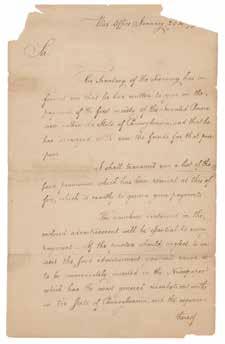 War Office January 20th
Sir.
The Secretary of the Treasury has in-
formed me that he has written to you on the
payment of the first moiety of the Invalid Pensi-
ons within the State of Pennsylvania, and that he
has arranged with you the funds for that pur-
pose.
I shall transmit you a list of the
pensioners which has been received at this of-
fice, which is to your payments.
The numbers contained in the
enclosed advertisement will be essential to your
payment. If the should
said advertisement you will cause it
to be immediately inserted in the Newspaper
which has the most general circulation with-
in the State of Pennsylvania, and the expence
thereof